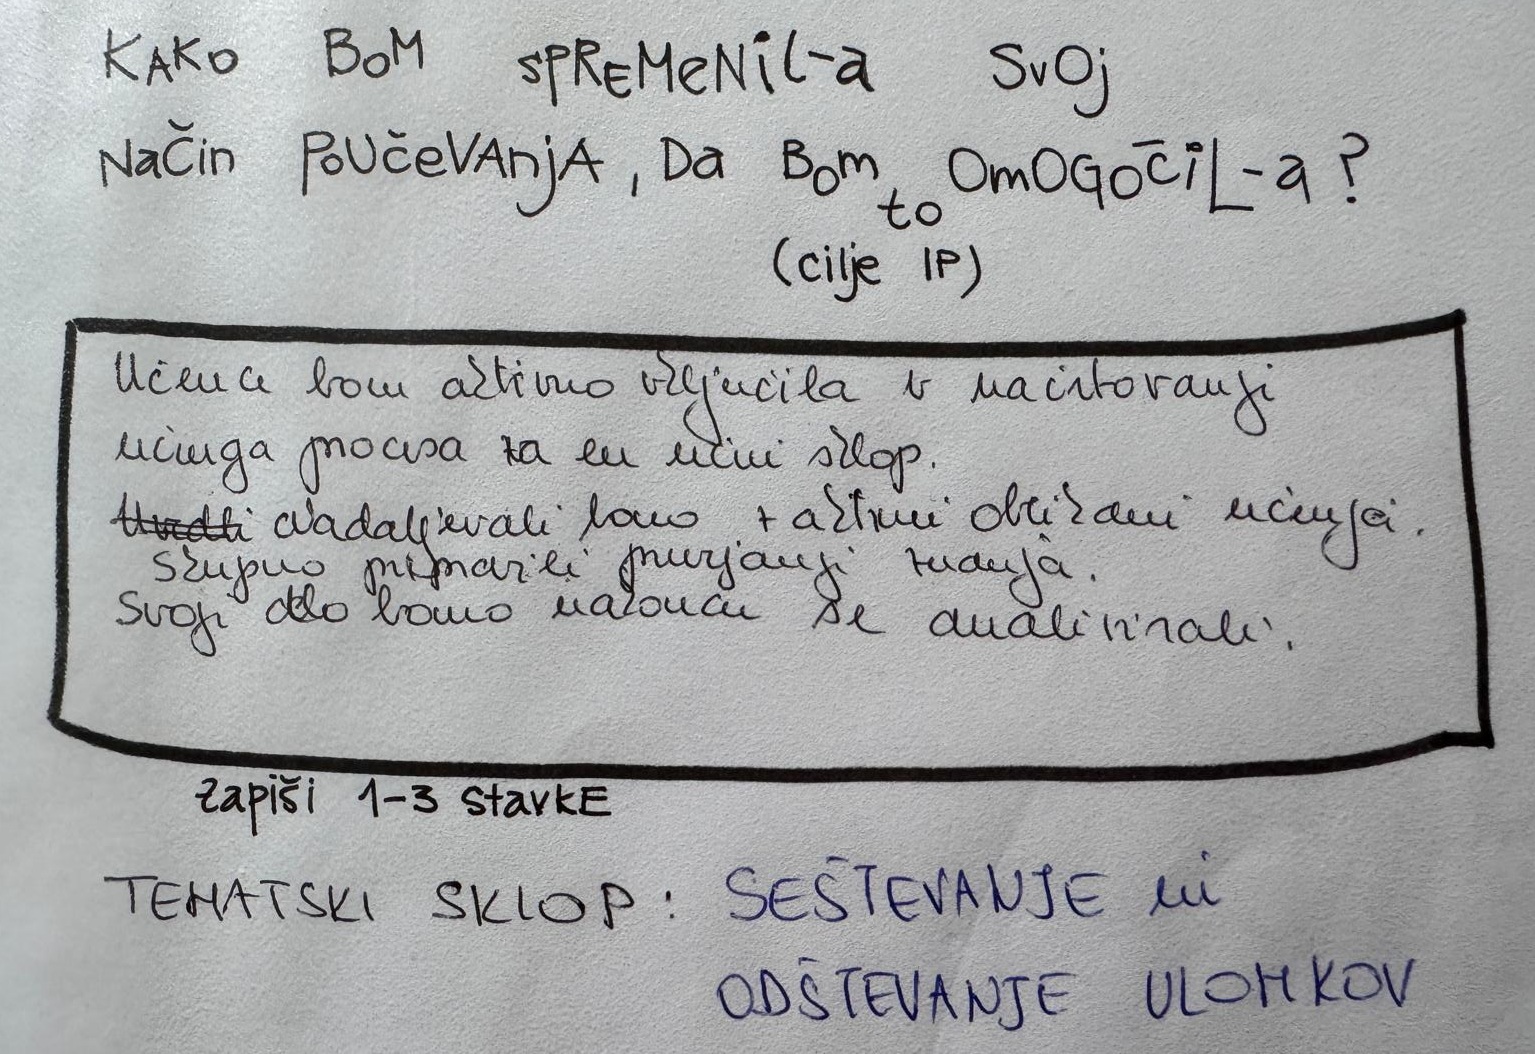 KAKO BOM SPREMENIL-A SVOJ
NAČIN POUČEVANJA, DA BOM to OMOGOČIL-A?
(cilje IP)
Učence bom aktivno vključila v načrtovanje
učnega procesa za en učni sklop.
Nadaljevali bomo z aktivnimi oblikami učenja.
Skupno primerili preverjanje znanja.
Svoje delo bomo na koncu še analizirali.
Zapiši 1-3 stavke
TEMATSKI SKLOP: SEŠTEVANJE in
ODŠTEVANJE ULOMKOV